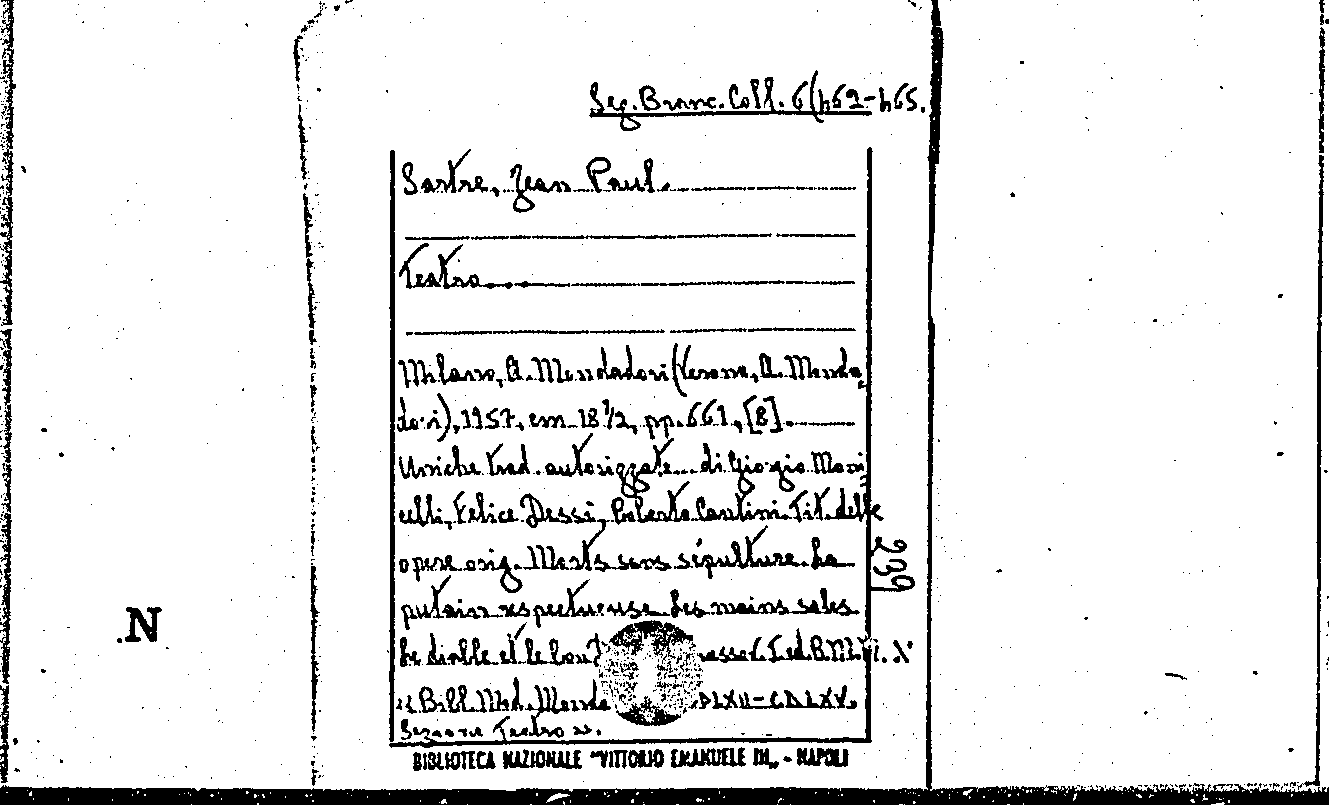 Seg. Branc. Coll. 6(462-465.
Sartre, Jean Paul.
Teatro...
Milano, A. Mondadori (Verona, A. Monda-
dori), 1957, cm 18½, pp. 661, [8].
Uniche trad. autorizzate di Giorgio Moni
celli, Felice Dessì, Roberto Cantini. Tit. delle
opere orig. Morts sans sépulture. La
putain respectueuse. Les mains sales.
Le diable et le bon
« Bibl. Mod. Monda DLXII-CDLXV.
Sezione Teatro ».
239
.N
BIBLIOTECA NAZIONALE "VITTORIO EMANUELE III„ - NAPOLI